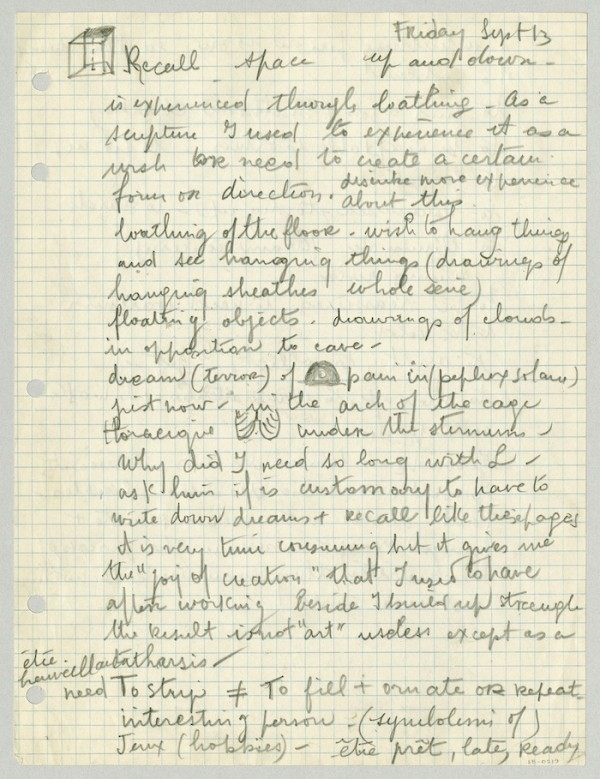 Friday Sept 13
Recall space up and down -
is experienced through loathing - As a
sculpture I used to experience it as a
wish or need to create a certain
form or direction. dislike more experience
about this
loathing of the floor. wish to hang things
and see hanging things (drawings of
hanging sheathes whole serie)
floating objects. drawings of clouds -
in opposition to cave -
dream (terror) of pain in (pephox solare)
just now - in the arch of the cage
thoracique under the sternums -
Why did I need so long with L -
ask him if is customary to have to
write down dreams + recall like these pages
it is very time consuming but it gives me
the "joy of creation" that I used to have
after working beside I build up strength
the result is not "art" useless except as a
catharsis -
être
need To strip ≠ To fill + ornate or repeat-
interesting person - (symbolism of)
Jeux (hobbies) - être prêt, late, ready